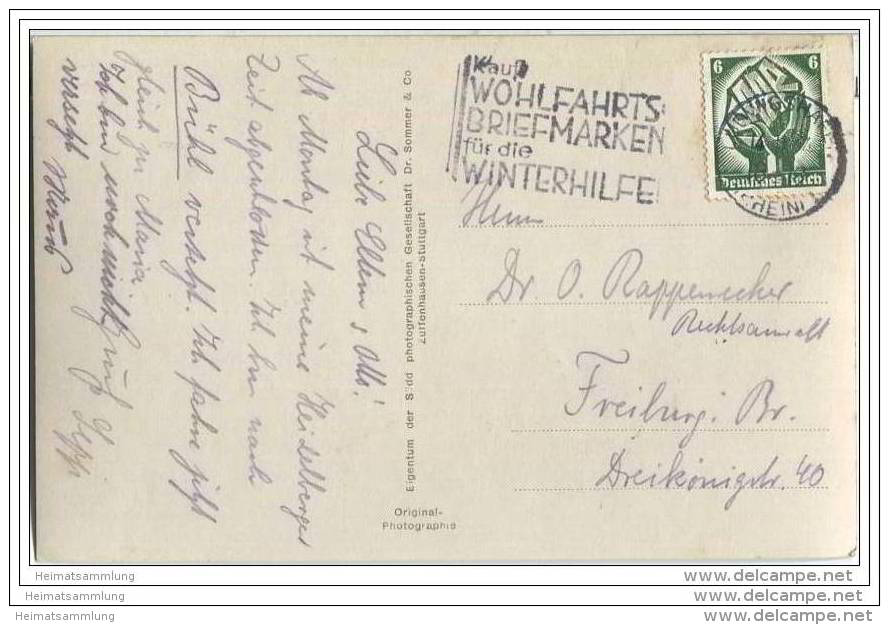 Kauft
WOHLFAHRTS-
BRIEFMARKEN
für die
WINTERHILFE
6 6
Deutsches Reich
(RHEIN)
Herrn
Dr. O. Rappenecker
Rechtsanwalt
Freiburg i. Br.
Dreikönigstr. 40
Liebe Eltern u. Otto!
Ab Montag ist meine Heidelberger
Zeit abgelaufen. Ich bin nach
Brühl versetzt. Ich fahre jetzt
gleich zu Maria. Gruß Seppi
Ich bin noch nicht
versetzt
Eigentum der Südd photographischen Gesellschaft Dr. Sommer & Co
Zuffenhausen-Stuttgart
Original-
Photographie
Heimatsammlung
www.delcampe.net
Heimatsammlung
www.delcampe.net
Heimatsammlung
www.delcampe.net